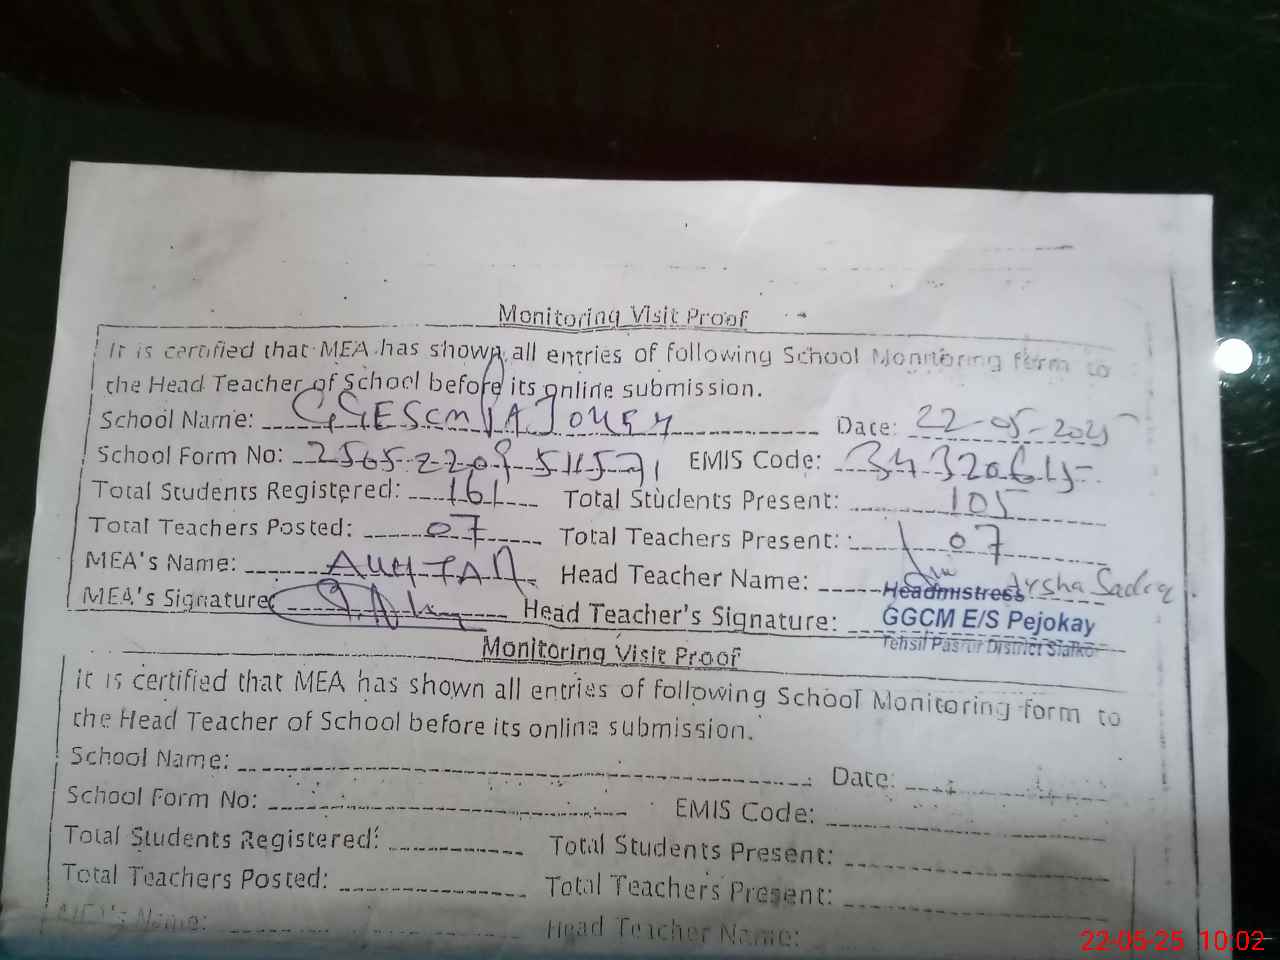 Monitoring Visit Proof
It is certified that MEA has shown all entries of following School Monitoring form to
the Head Teacher of School before its online submission.
School Name: Date: 22-05-2025
School Form No: EMIS Code: 34320645
Total Students Registered: 161 Total Students Present: 105
Total Teachers Posted: 07 Total Teachers Present: 07
MEA's Name: Head Teacher Name: Aysha Sadiq
MEA's Signature Head Teacher's Signature:
Headmistress
GGCM E/S Pejokay
Tehsil Pasrur District Sialko
Monitoring Visit Proof
it is certified that MEA has shown all entries of following School Monitoring form to
the Head Teacher of School before its online submission.
School Name: Date:
School Form No: EMIS Code:
Total Students Registered: Total Students Present:
Total Teachers Posted: Total Teachers Present:
MEA's Name: Head Teacher Name:
22-05-25 10:02